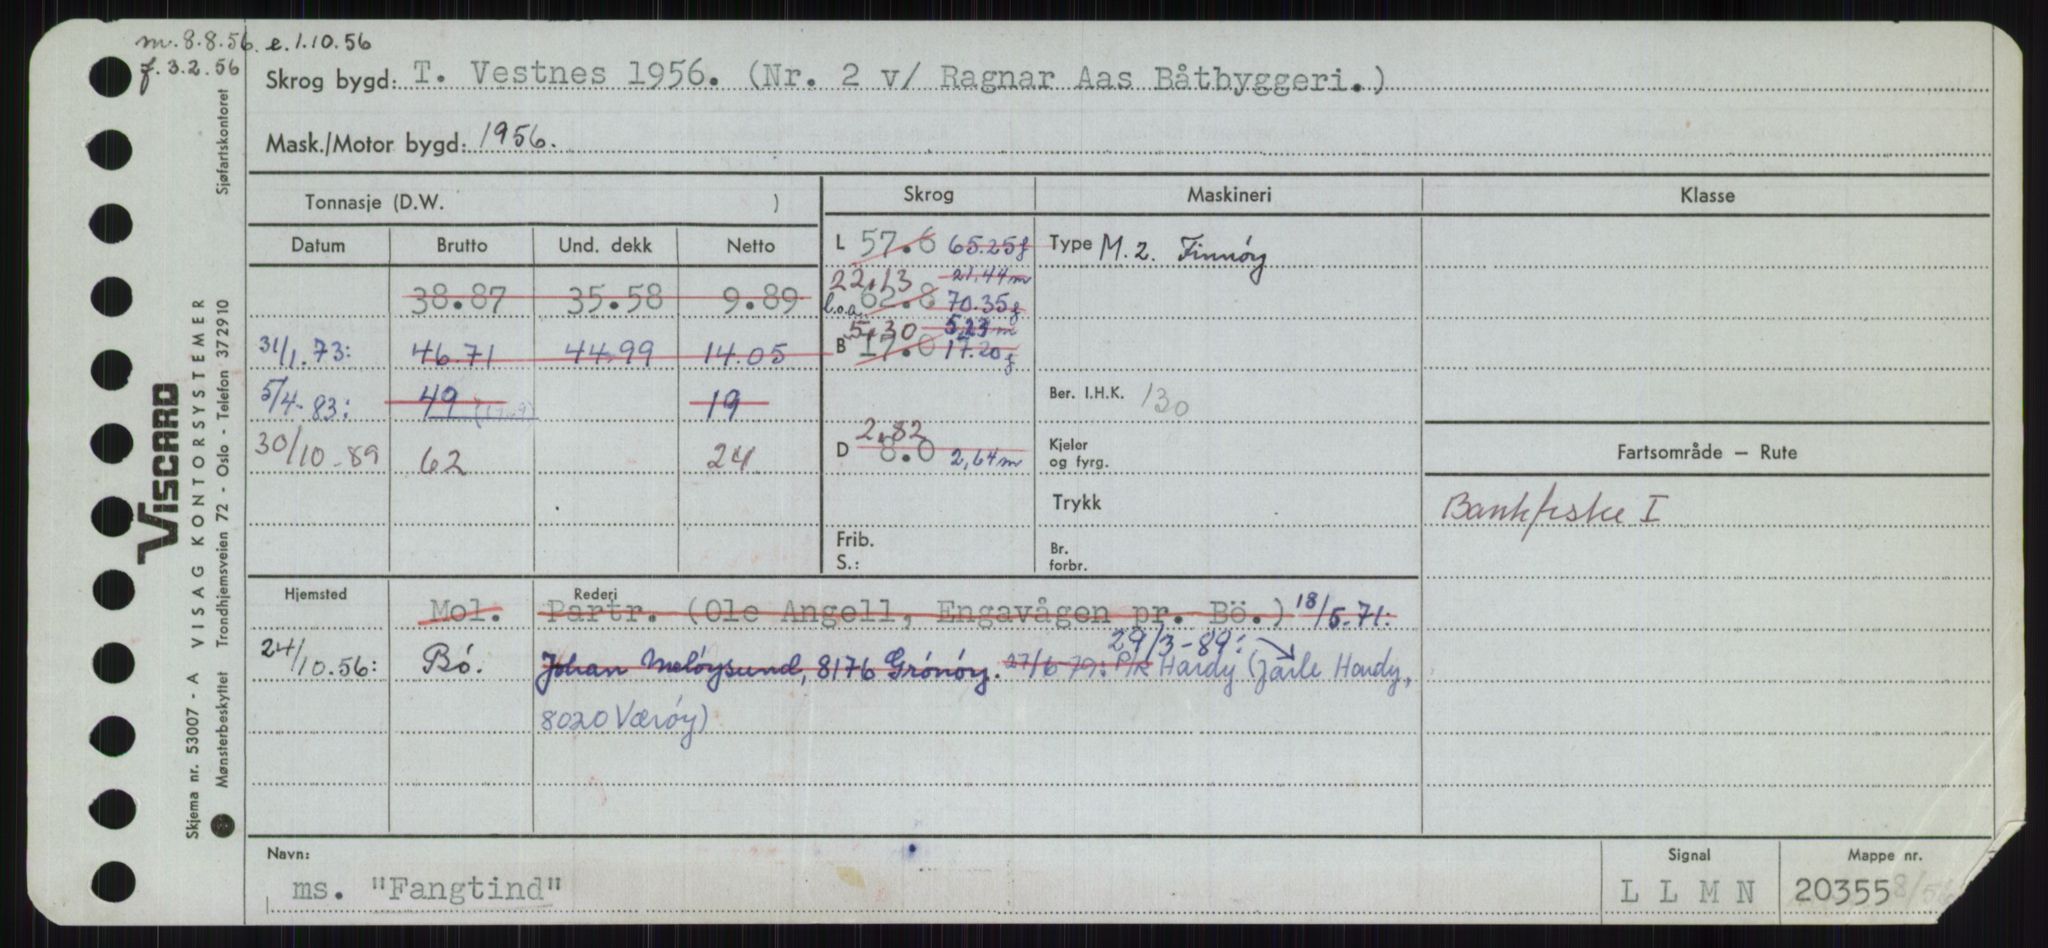 m. 8.8.56. e. 1.10.56
f. 3.2.56
Skrog bygd: T. Vestnes 1956. (Nr. 2 v/ Ragnar Aas Båtbyggeri.)
Mask./Motor bygd: 1956.
Tonnasje (D.W. )
Skrog Maskineri Klasse
Datum Brutto Und. dekk Netto
L 57.6 65.25f
Type M. 2. Finnöy
22,13 21,44m
38.87 35.58 9.89
l.o.a. 62.8 70.35f
5,30 5,23m
31/1.73: 46.71 44.99 14.05
B 17.0 17.20f
5/4-83: 49 19
Ber. I.H.K. 130
30/10-89 62 24
2,82
D 8.0 2,64m
Kjeler
og fyrg.
Fartsområde — Rute
Trykk
Bankfiske I
Frib.
S.:
Br.
forbr.
Hjemsted Rederi
Mol. Partr. (Ole Angell, Engavågen pr. Bö.) 18/5.71:
29/3-89:
24/10.56: Bö. Johan Meløysund, 8176 Grönöy. 27/6 79: P/R Hardy (Jarle Hardy,
8020 Værøy)
Navn:
ms. "Fangtind"
Signal
L L M N
Mappe nr.
20355 8/56
Sjøfartskontoret
VISCARD
Skjema nr. 53007 - A VISAG KONTORSYSTEMER
Mønsterbeskyttet Trondhjemsveien 72 - Oslo - Telefon 372910